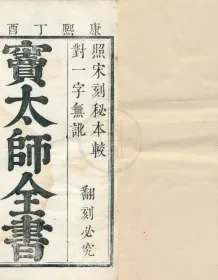 康熙丁酉
照宋刻秘本較
對一字無訛
竇太師全書
翻刻必究